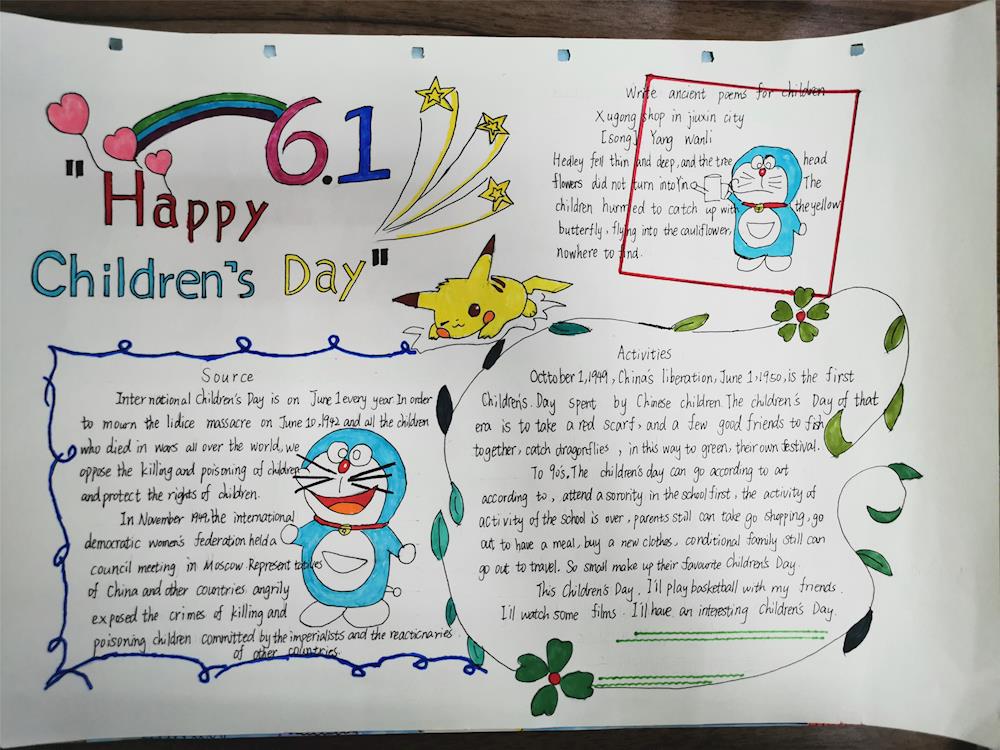 6.1
"Happy
Children's Day"
Write ancient poems for children
Xugong shop in jiuxin city
[song] Yang Wanli
Hedley fell thin and deep, and the tree head
flowers did not turn into Yin. The
children hurried to catch up with the yellow
butterfly, flying into the cauliflower,
nowhere to find.
Source
International Children's Day is on June 1 every year. In order
to mourn the lidice massacre on June 10, 1942 and all the children
who died in wars all over the world, we
oppose the killing and poisoning of children
and protect the rights of children.
In November 1949, the international
democratic women's federation held a
council meeting in Moscow. Representatives
of China and other countries angrily
exposed the crimes of killing and
poisoning children committed by the imperialists and the reactionaries
of other countries.
Activities
Octtober 1, 1949, China's liberation, June 1, 1950, is the first
Children's. Day spent by Chinese children. The children's Day of that
era is to take a red scarf, and a few good friends to fish
together, catch dragonflies, in this way to green, their own festival.
To 90's. The children's day can go according to art
according to, attend a sorority in the school first, the activity of
activity of the school is over, parents still can take go shopping, go
out to have a meal, buy a new clothes, conditional family still can
go out to travel. So small make up their favourite Children's Day.
This Children's Day. I'll play basketball with my friends.
I'll watch some films. I'll have an interesting Children's Day.